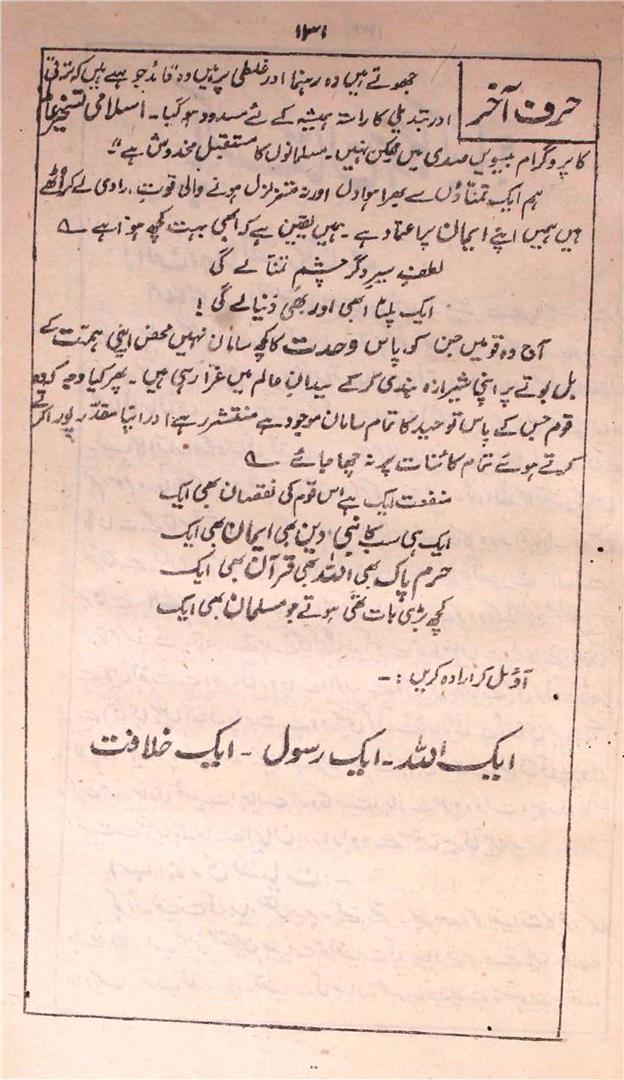 ۱۳۱
حرف آخر
جھوٹے ہیں وہ رہنما اور غلطی پر ہیں وہ قائد جو کہتے ہیں کہ ترقی
اور تبدیلی کا راستہ ہمیشہ کے لئے مسدود ہو گیا۔ اسلامی تسخیر عالم
کا پروگرام بیسویں صدی میں ممکن نہیں۔ مسلمانوں کا مستقبل مخدوش ہے"۔
ہم ایک تمناؤں سے بھرا ہوا دل اور نہ متزلزل ہونے والی قوتِ ارادی لے کر اٹھے
ہیں ہمیں اپنے ایمان پر اعتماد ہے۔ ہمیں یقین ہے کہ ابھی بہت کچھ ہونا ہے ؎
لطفِ سیرِ دگر چشمِ تمنا لے گی
ایک پلٹا ابھی اور بھی دُنیا لے گی!
آج وہ قومیں جن کے پاس وحدت کا کچھ سامان نہیں محض اپنی ہمت کے
بل بوتے پر اپنی شیرازہ بندی کر کے میدانِ عالم میں غرا رہی ہیں۔ پھر کیا وجہ کہ وہ
قوم جس کے پاس توحید کا تمام سامان موجود ہے منتشر رہے اور اپنا مقدر پورا کرتے
کرتے ہوئے تمام کائنات پر نہ چھا جائے ؎
منفعت ایک ہے اس قوم کی نقصان بھی ایک
ایک ہی سب کا نبی دین بھی ایمان بھی ایک
حرمِ پاک بھی اللہ بھی قرآن بھی ایک
کچھ بڑی بات تھی ہوتے جو مسلمان بھی ایک
آؤ مل کر ارادہ کریں :۔
ایک اللہ ۔ ایک رسول ۔ ایک خلافت